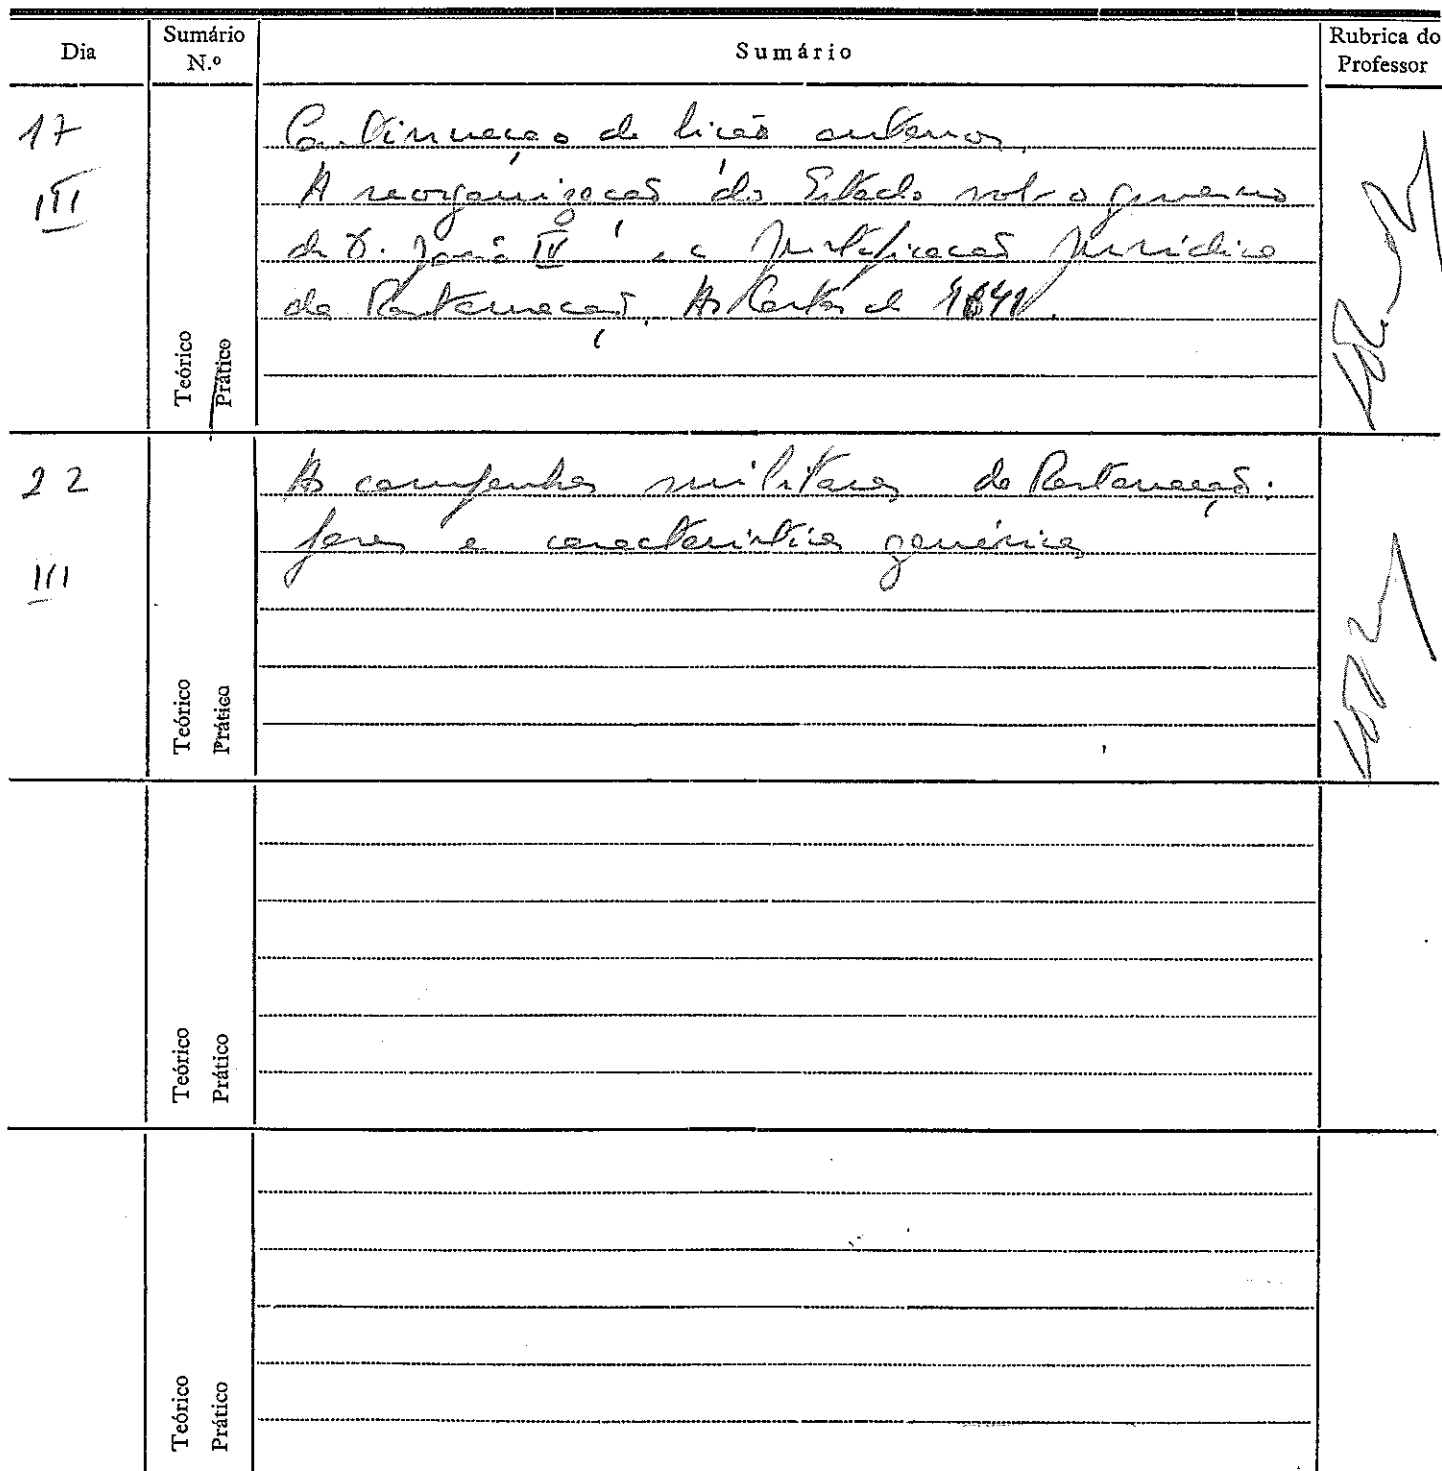 Dia
Sumário N.º
Sumário
Rubrica do Professor
17
III
Continuação da lição anterior.
A reorganização do Estado sob o governo
de D. João IV e a justificação jurídica
da Restauração. As Cortes de 1641.
Teórico
Prático
22
III
As campanhas militares da Restauração:
fases e características genéricas
Teórico
Prático
Teórico
Prático
Teórico
Prático